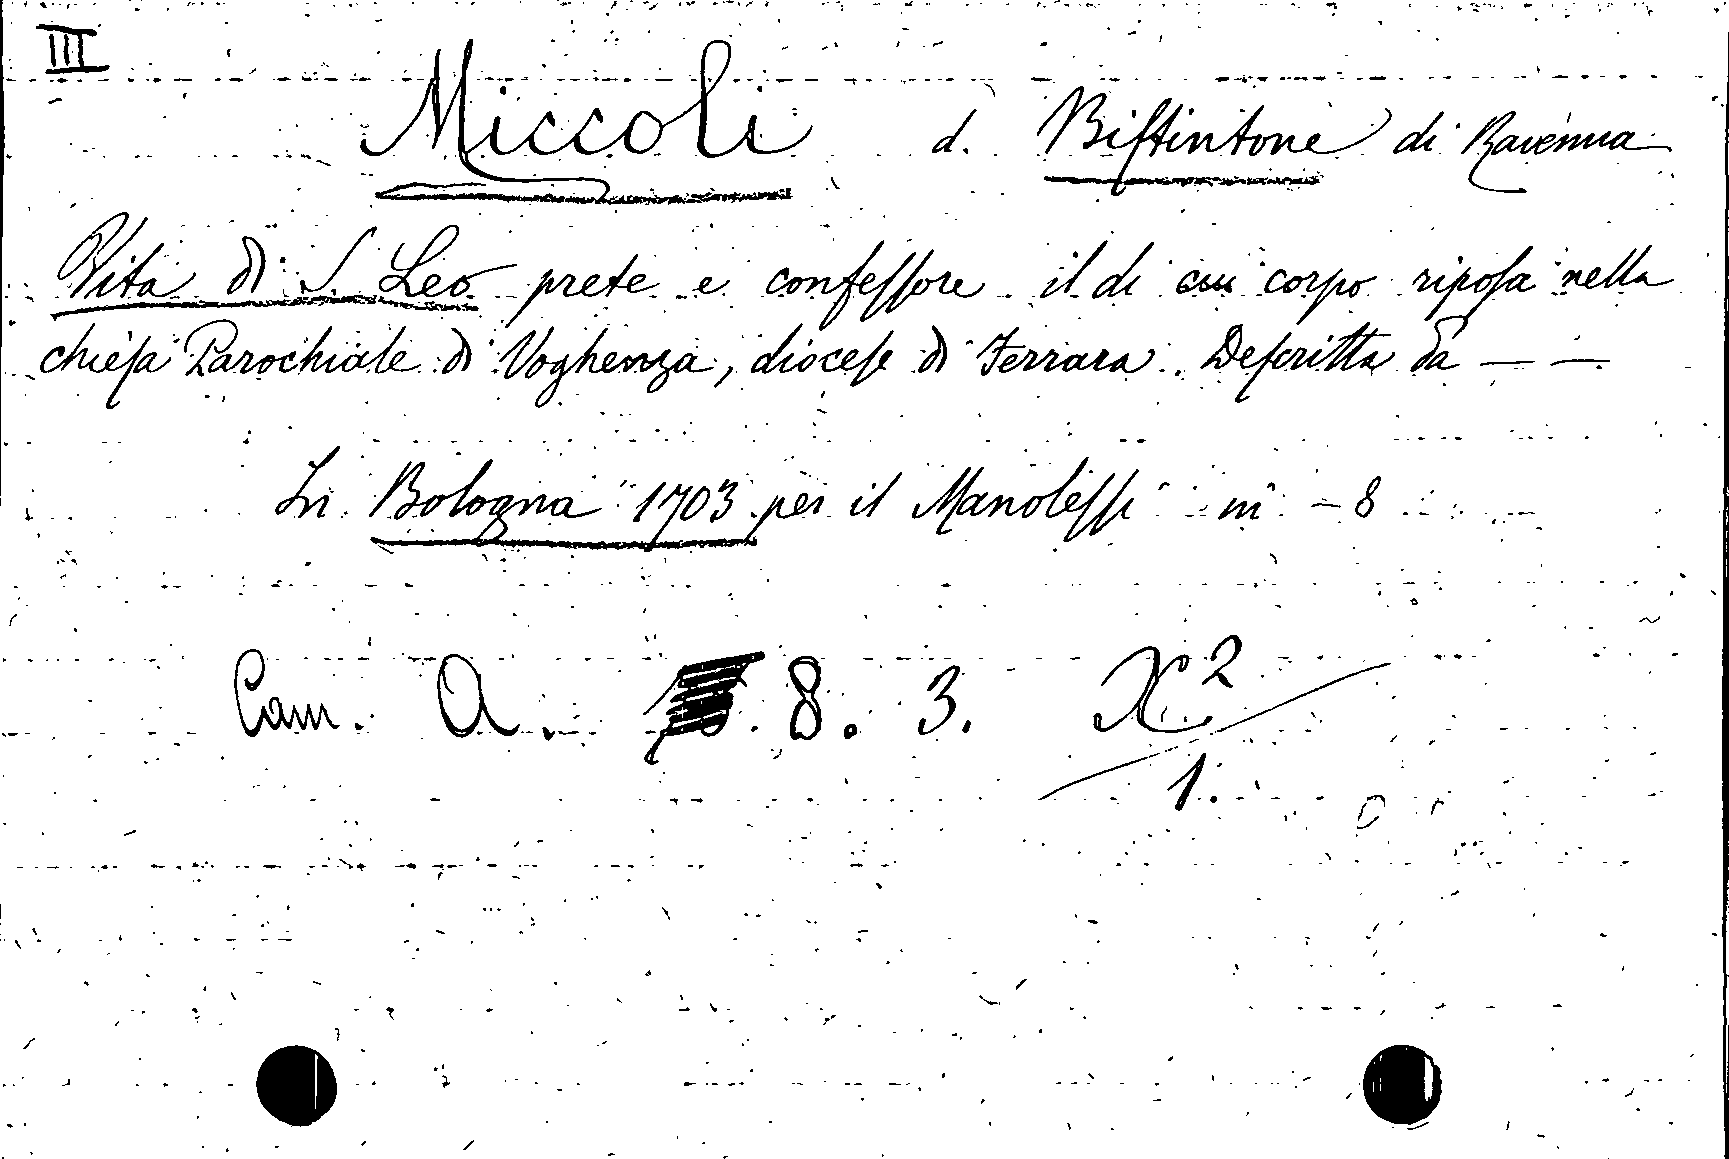 III
Miccoli d. Biſtintone di Ravenna
Vita di S. Leo prete e confeſſore il di cui corpo ripoſa nella
chieſa Parochiale di Voghenza, dioceſe di Ferrara. Deſcritta da — —
In Bologna 1703 per il Manoleſſi in - 8
Cam. A. 8. 3. X²
1.